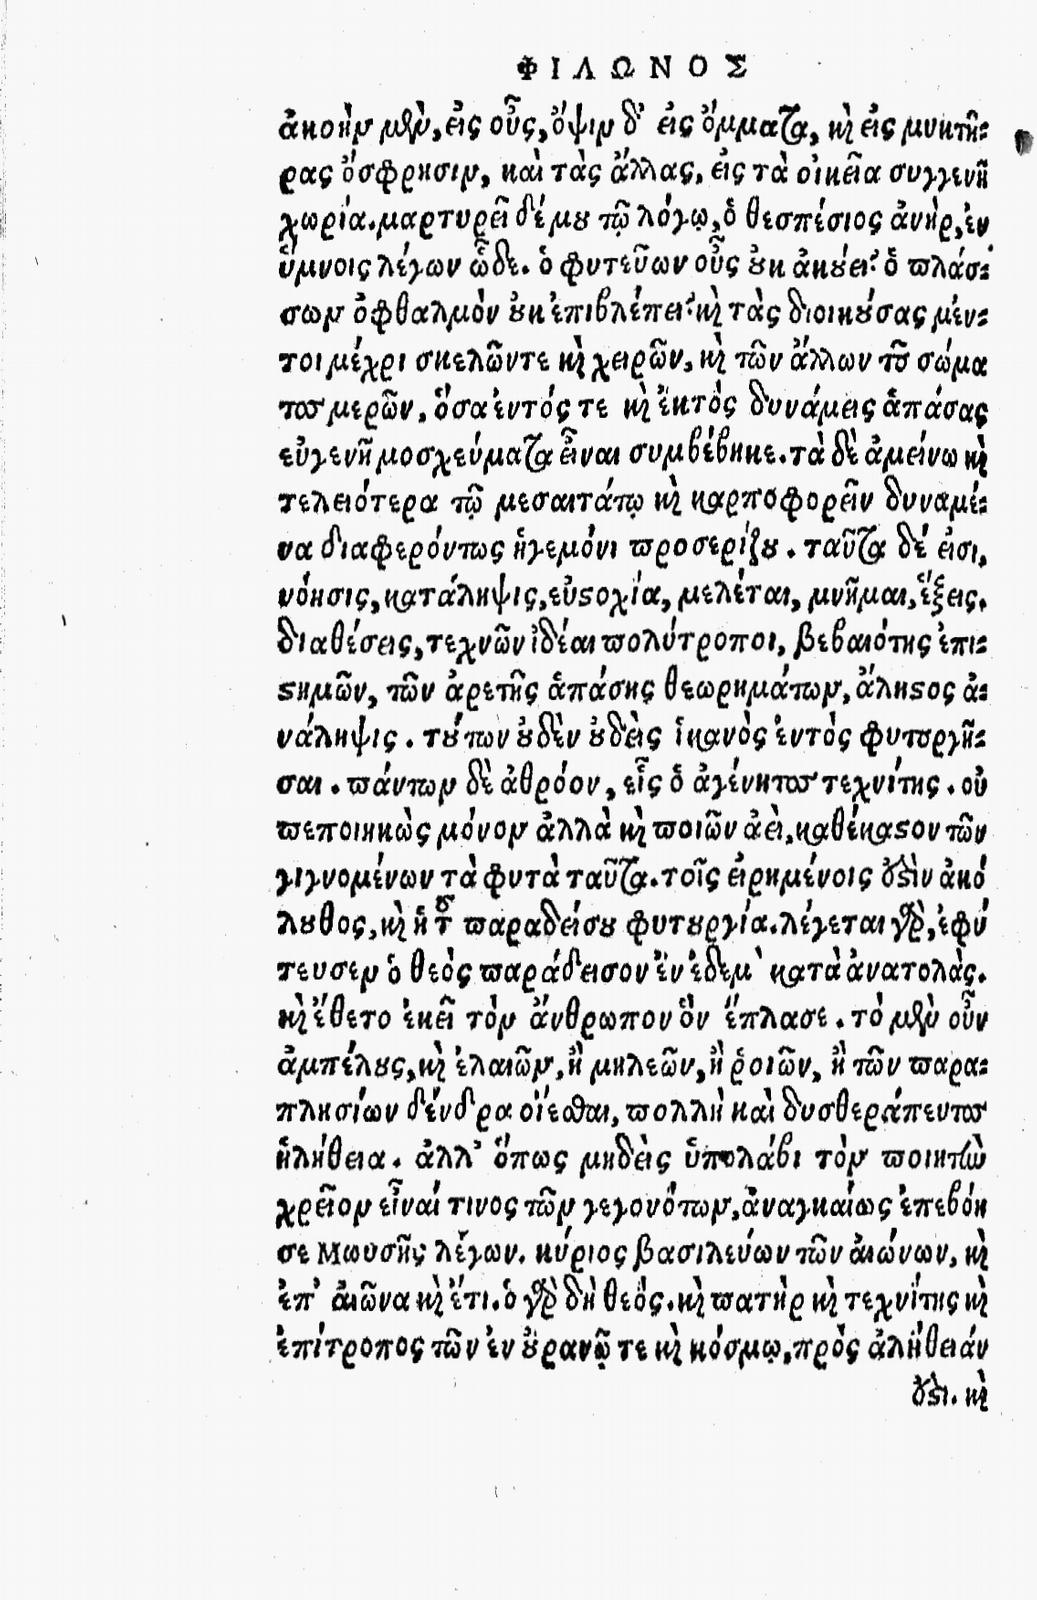 ΦΙΛΩΝΟΣ
ἀκοὴν μὲν, εἰς οὖς, ὄψιν δ' εἰς ὄμματα, καὶ εἰς μυκτῆ-
ρας ὄσφρησιν, καὶ τὰς ἄλλας, εἰς τὰ οἰκεῖα συγγενῆ
χωρία. μαρτυρεῖ δέ μου τῷ λόγῳ, ὁ θεσπέσιος ἀνὴρ, ἐν
ὕμνοις λέγων ὧδε. ὁ φυτεύων οὖς οὐκ ἀκούει; ὁ πλάσ-
σων ὀφθαλμὸν οὐκ ἐπιβλέπει; καὶ τὰς διοικούσας μέν-
τοι μέχρι σκελῶντε καὶ χειρῶν, καὶ τῶν ἄλλων τοῦ σώμα
τος μερῶν, ὅσα ἐντός τε καὶ ἐκτὸς δυνάμεις ἁπάσας
εὐγενῆ μοσχεύματα εἶναι συμβέβηκε. τὰ δὲ ἀμείνω καὶ
τελειότερα τῷ μεσαιτάτῳ καὶ καρποφορεῖν δυναμέ-
να διαφερόντως ἡγεμόνι προσερίζου. ταῦτα δέ εἰσι,
νόησις, κατάληψις, εὐστοχία, μελέται, μνῆμαι, ἕξεις,
διαθέσεις, τεχνῶν ἰδέαι πολύτροποι, βεβαιότης ἐπι-
στημῶν, τῶν ἀρετῆς ἁπάσης θεωρημάτων, ἄληστος ἀ-
νάληψις. τούτων οὐδὲν οὐδεὶς ἱκανὸς ἐντὸς φυτουργῆ-
σαι. πάντων δὲ ἀθρόον, εἷς ὁ ἀγένητος τεχνίτης. οὐ
πεποιηκὼς μόνον ἀλλὰ καὶ ποιῶν ἀεὶ, καθέκαστον τῶν
γιγνομένων τὰ φυτὰ ταῦτα. τοῖς εἰρημένοις ἐστὶν ἀκό
λουθος, καὶ ἡ τοῦ παραδείσου φυτουργία. λέγεται γὰρ, ἐφύ
τευσεν ὁ θεὸς παράδεισον ἐν ἐδεμ κατὰ ἀνατολὰς.
καὶ ἔθετο ἐκεῖ τὸν ἄνθρωπον ὃν ἔπλασε. τὸ μὲν οὖν
ἀμπέλους, καὶ ἐλαιῶν, ἢ μηλεῶν, ἢ ῥοιῶν, ἢ τῶν παρα-
πλησίων δένδρα οἴεσθαι, πολλὴ καὶ δυσθεράπευτος
ἠλήθεια. ἀλλ' ὅπως μηδεὶς ὑπολάβι τὸν ποιητὴν
χρεῖον εἶναί τινος τῶν γεγονότων, ἀναγκαίως ἐπεβόη
σε Μωυσῆς λέγων. κύριος βασιλεύων τῶν αἰώνων, καὶ
ἐπ' αἰῶνα καὶ ἔτι. ὁ γὰρ δὴ θεός. καὶ πατὴρ καὶ τεχνίτης καὶ
ἐπίτροπος τῶν ἐν οὐρανῷ τε καὶ κόσμῳ, πρὸς ἀλήθειάν
ἐστι. καὶ